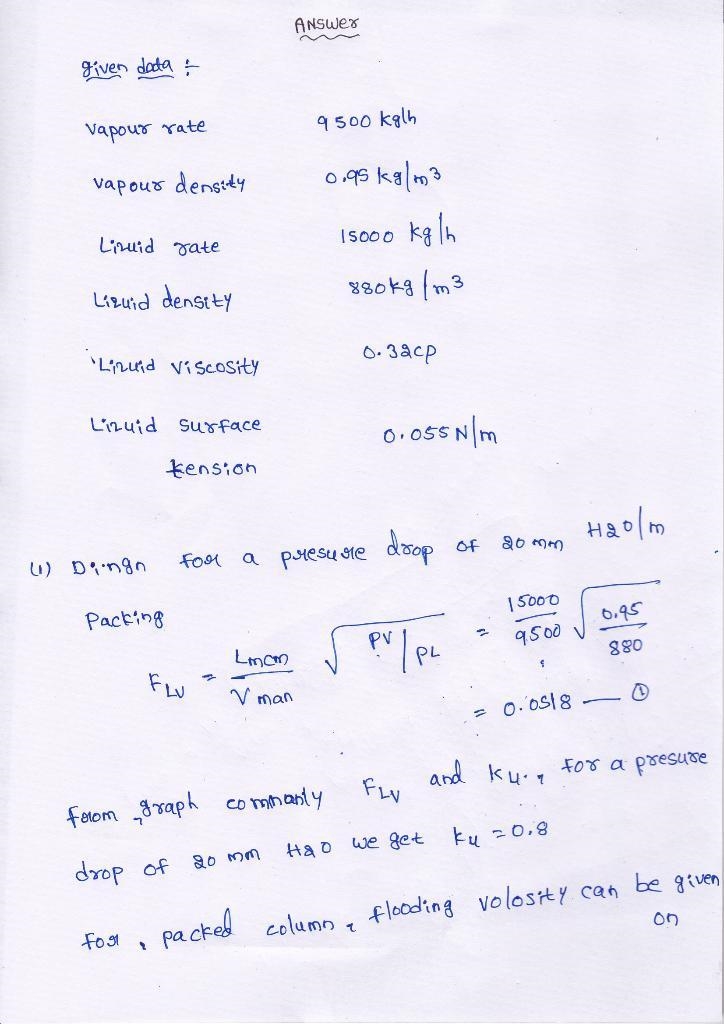 Answer
given data :-
vapour rate 9500 kg/h
vapour density 0.95 kg/m3
Liquid rate 15000 kg/h
Liquid density 880kg/m3
Liquid viscosity 0.32cp
Liquid surface 0.055N/m
tension
(1) for a presure drop of 20 mm H2O/m
Packing
FLV = / V man √ PV/PL = 15000/9500 √ 0.95/880
= 0.0518 — ①
from graph FLV and K4., for a presure
drop of 20 mm H2O we get k4 = 0.8
for, packed column, flooding volosity can be given
on